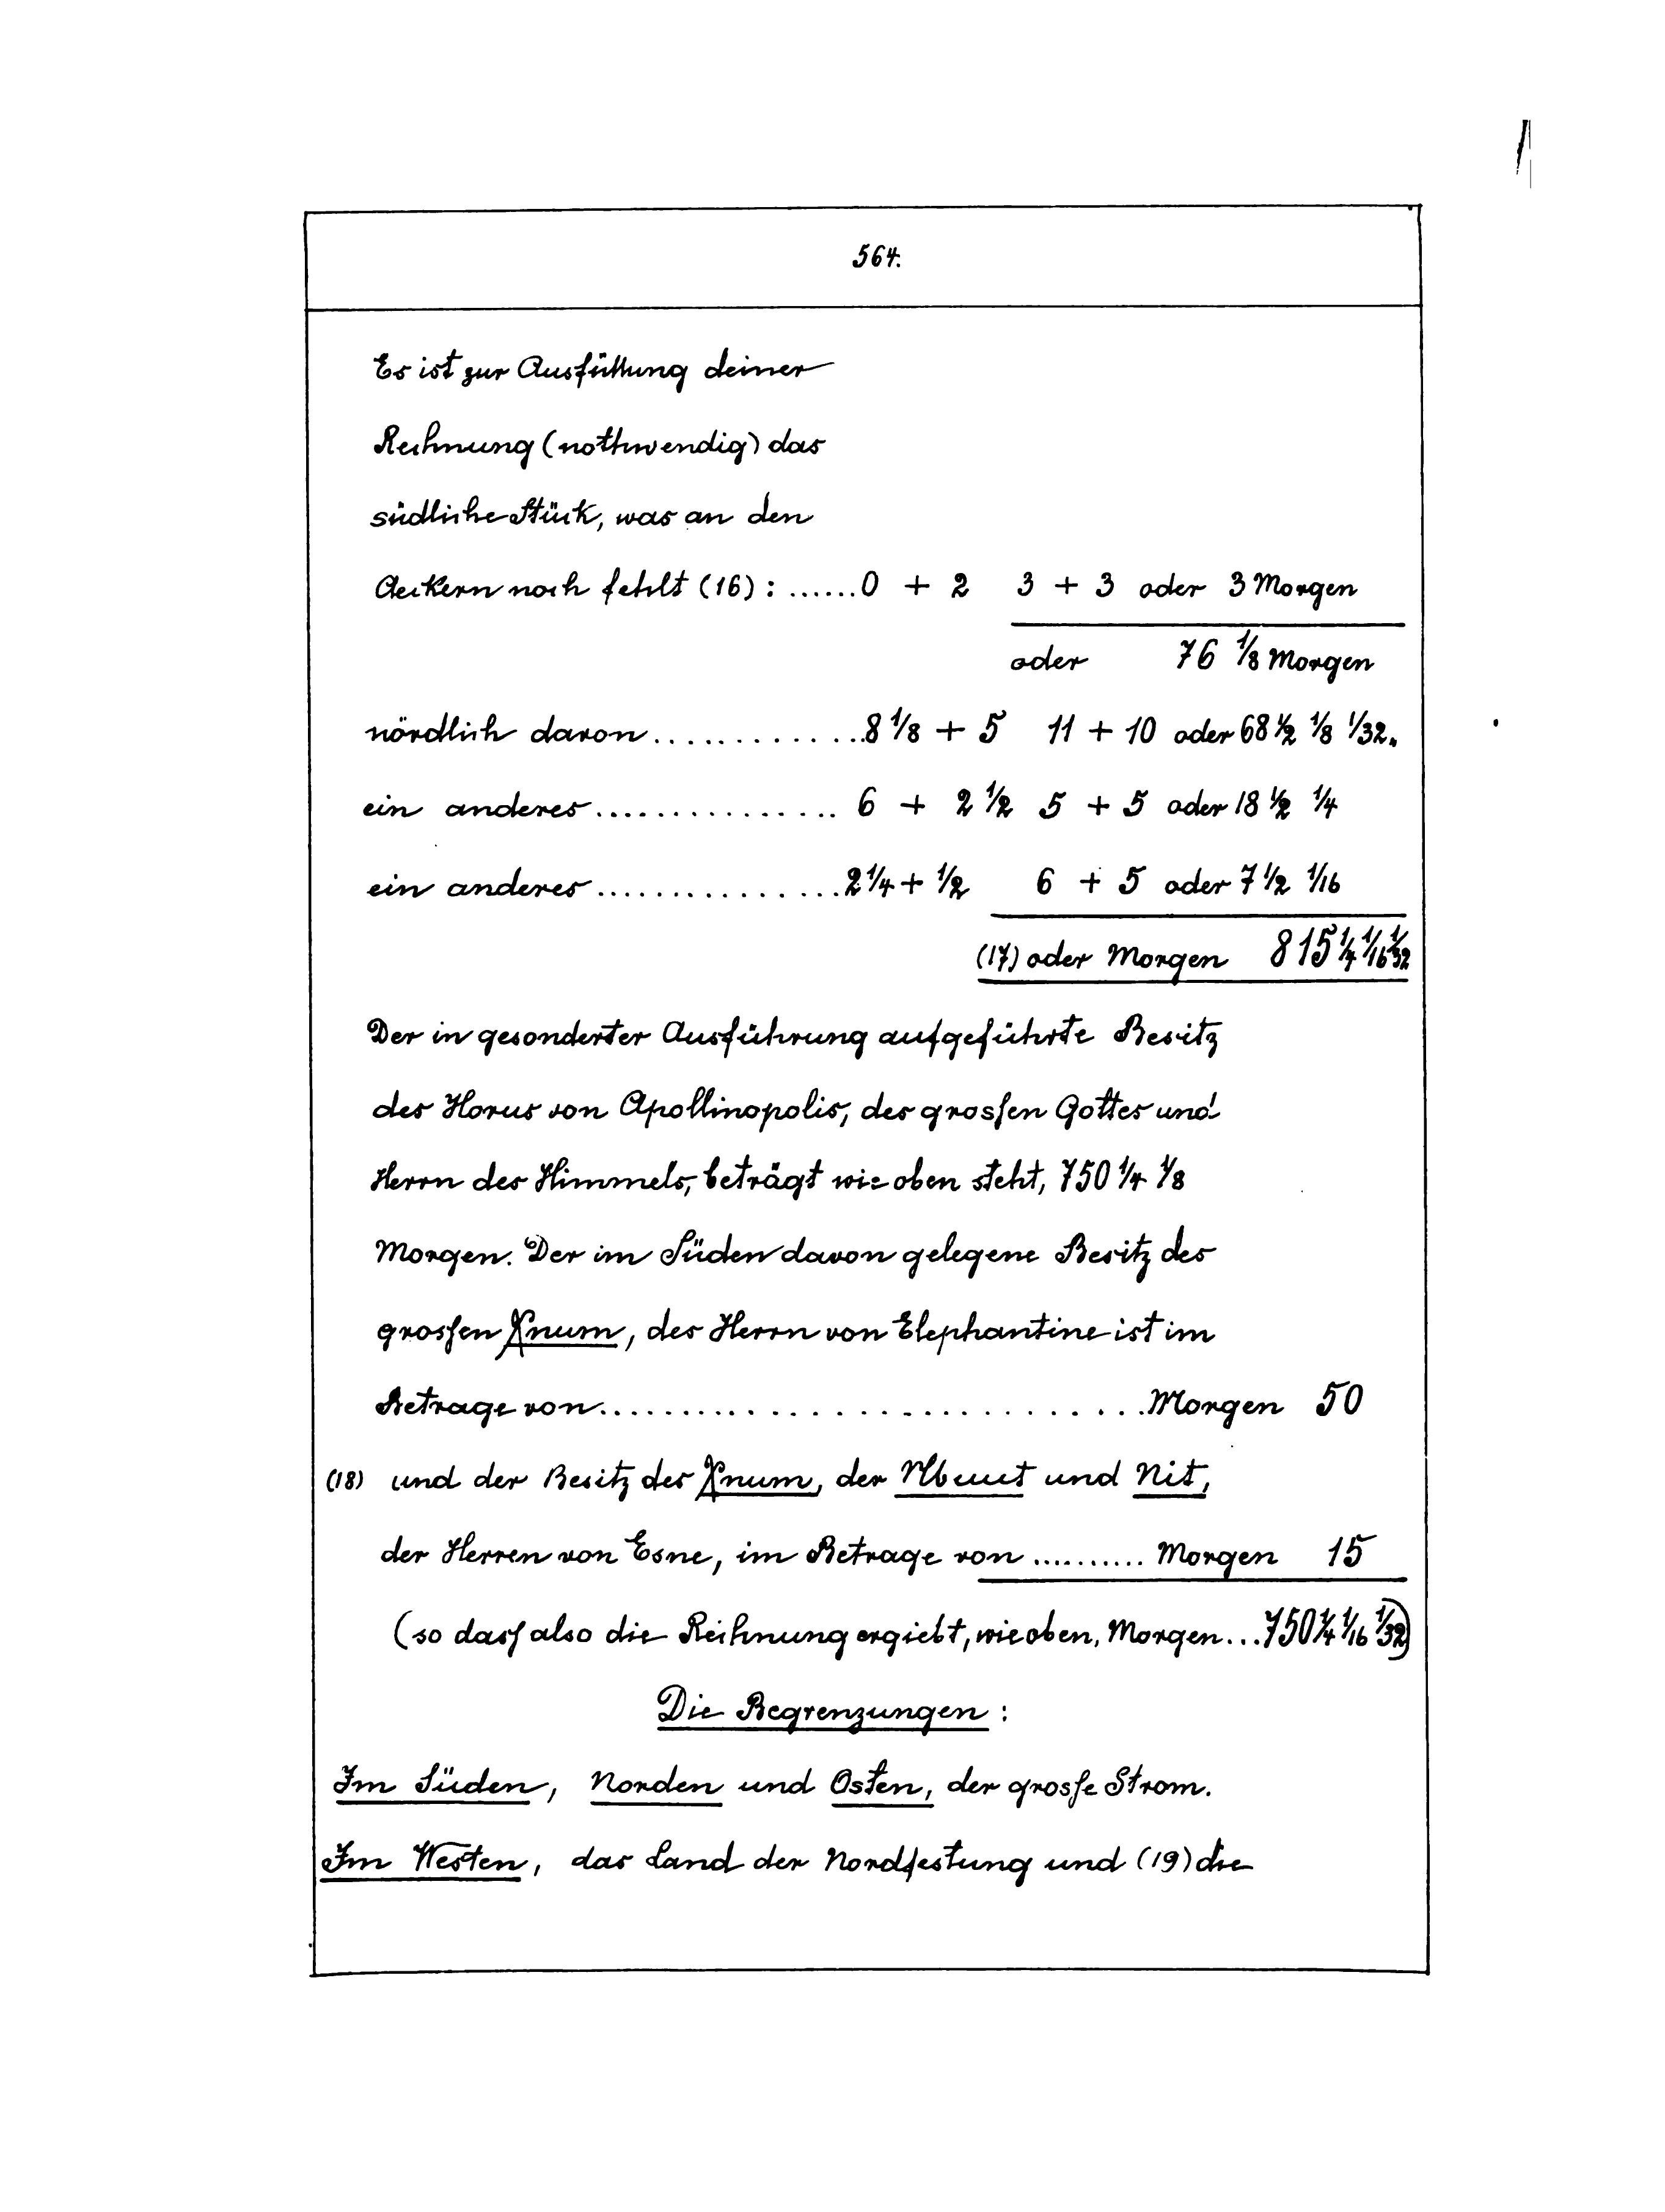 564.
Es ist zur Ausfüllung deiner
Rechnung (nothwendig) das
südliche Stück, was an den
Aeckern noch fehlt (16): ...... 0 + 2 3 + 3 oder 3 Morgen
oder 76 1/8 Morgen
nördlich davon .............. 8 1/8 + 5 11 + 10 oder 68 1/2 1/8 1/32.
ein anderes ................ 6 + 2 1/2 5 + 5 oder 18 1/2 1/4
ein anderes ................ 2 1/4 + 1/2 6 + 5 oder 7 1/2 1/16
(17) oder Morgen 815 1/4 1/16 1/32
Der in gesonderter Ausführung aufgeführte Besitz
des Horus von Apollinopolis, des grossen Gottes und
Herrn des Himmels, beträgt wie oben steht, 750 1/4 1/8
Morgen. Der im Süden davon gelegene Besitz des
grossen Xnum, des Herrn von Elephantine ist im
Betrage von .............................. Morgen 50
(18) und der Besitz des Xnum, der und Nit,
der Herren von Esne, im Betrage von .......... Morgen 15
(so dass also die Rechnung ergiebt, wie oben, Morgen ... 750 1/4 1/16 1/32)
Die Begrenzungen:
Im Süden, Norden und Osten, der grosse Strom.
Im Westen, das Land der Nordfestung und (19) die